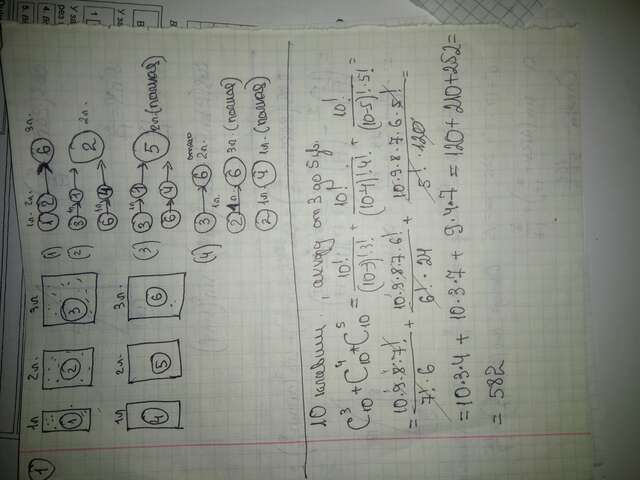 1
1л. 2л. 3л.
1 2 3
1л 2л. 3л.
4 5 6
(1) 1л. 2л. 3л.
1 2 → 6
(2) 3 → 1 → 2 2л.
6 → 4
(3) 3 → 1 → 5 2л (полная)
6 → 4
(4) 3 → 6 2л.
1л.
2 → 6 3л (полная)
2 1л 4 1л. (полная)
10 клавиш, аккорд от 3 до 5 зв.
C₁₀³ + C₁₀⁴ + C₁₀⁵ = 10!/(10-3)!3! + 10!/(10-4)!4! + 10!/(10-5)!5! =
= 10·9·8·7!/7!·6 + 10·9·8·7·6!/6!·24 + 10·9·8·7·6·5!/5!·120 =
= 10·3·4 + 10·3·7 + 9·4·7 = 120 + 210 + 252 =
= 582